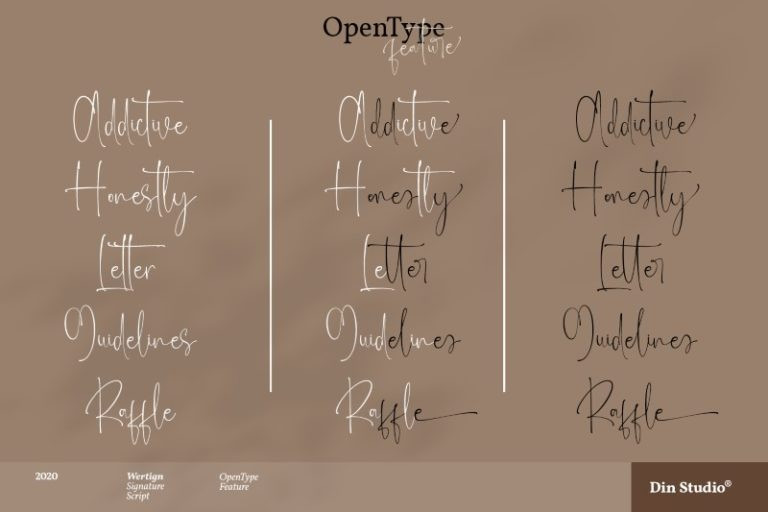 OpenType
feature
Addictive
Honestly
Letter
Guidelines
Raffle
Addictive
Honestly
Letter
Guidelines
Raffle
Addictive
Honestly
Letter
Guidelines
Raffle
2020
Wertign
Signature
Script
OpenType
Feature
Din Studio®